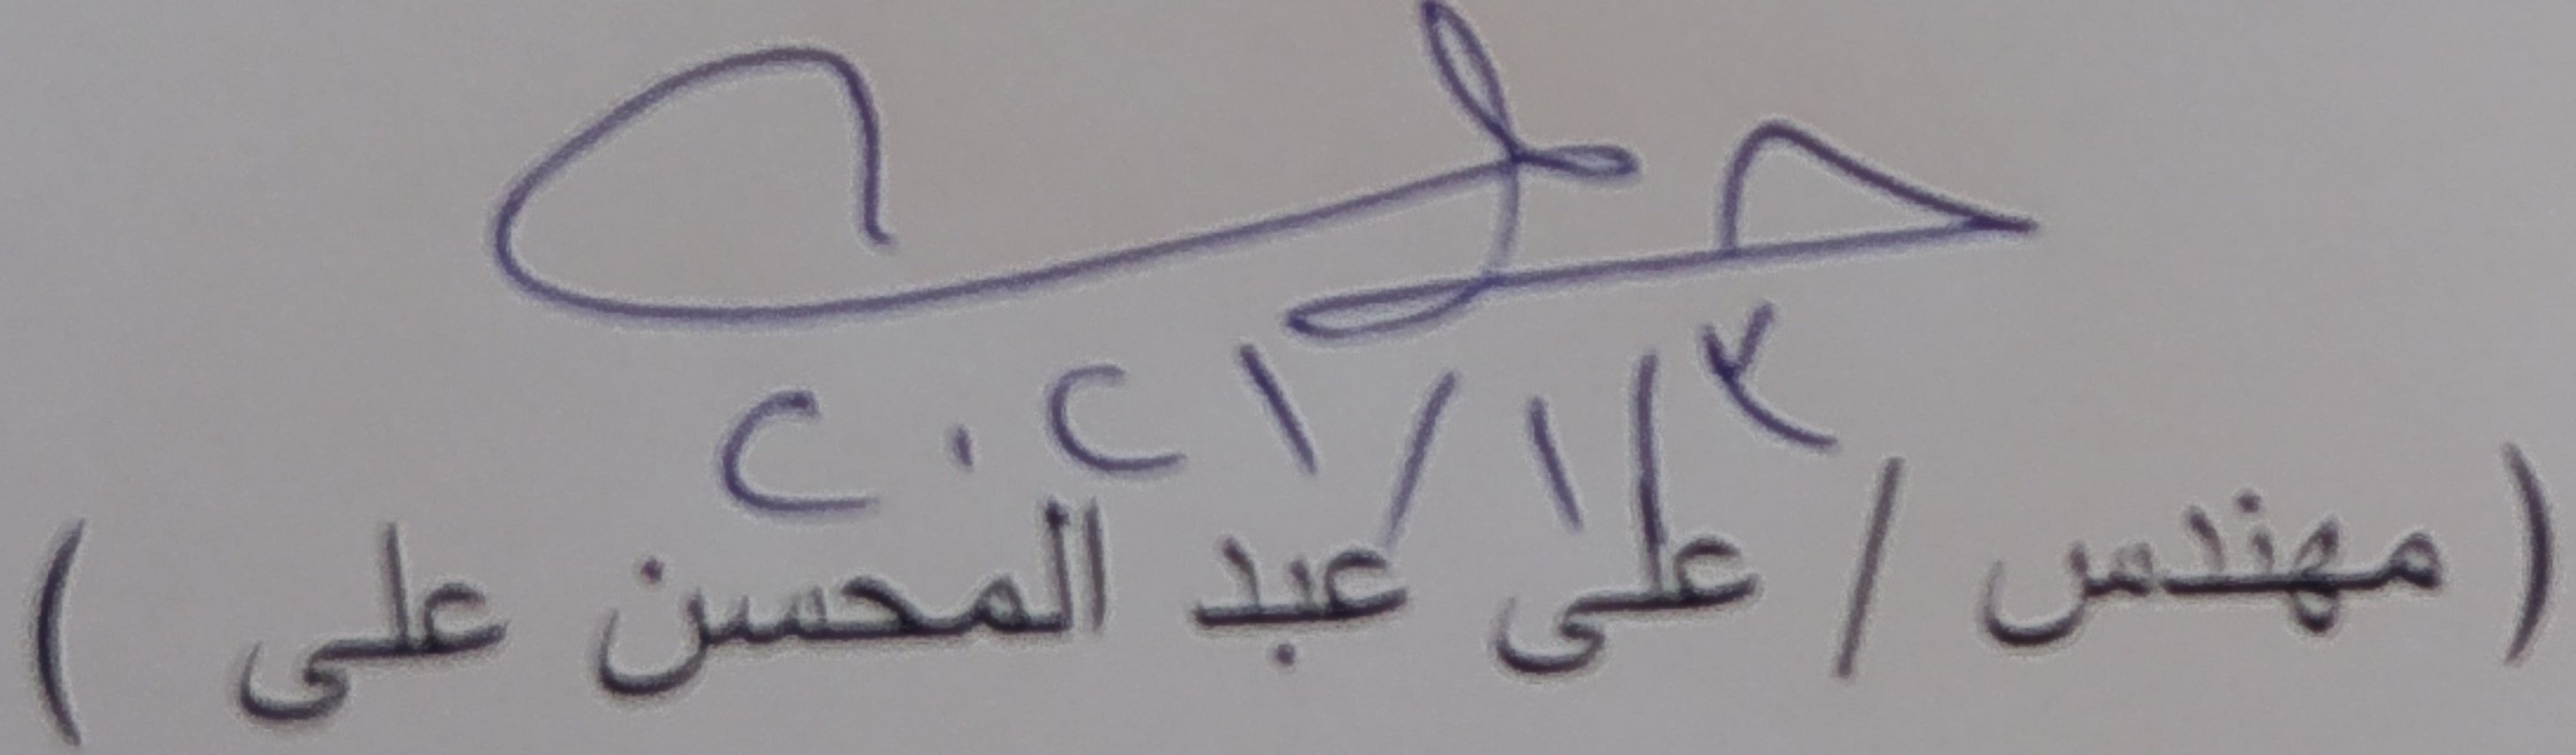 ٣/١/٢٠٢١
( مهندس / على عبد المحسن على )